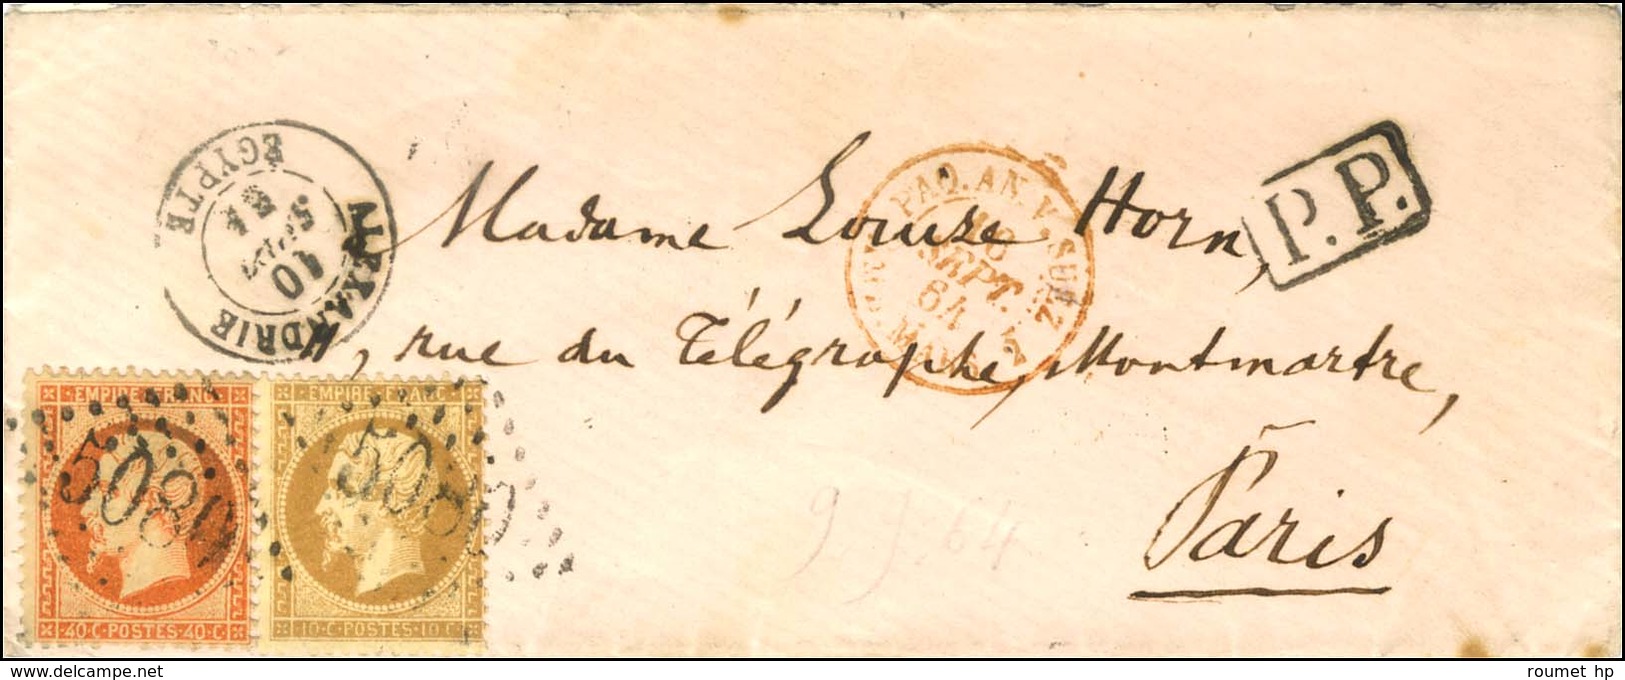 ALEXANDRIE
EGYPTE
10
SEPT.
64
PAQ. AN. V. SUEZ
18
SEPT.
64
P.P.
Madame Louise Horn,
11, rue du Télégraphe, Montmartre,
Paris
EMPIRE FRANC
40·C·POSTES·40·C
5080
EMPIRE FRANC
10·C·POSTES·10·C
5080
9 9 64
www.delcampe.net
roumet hp